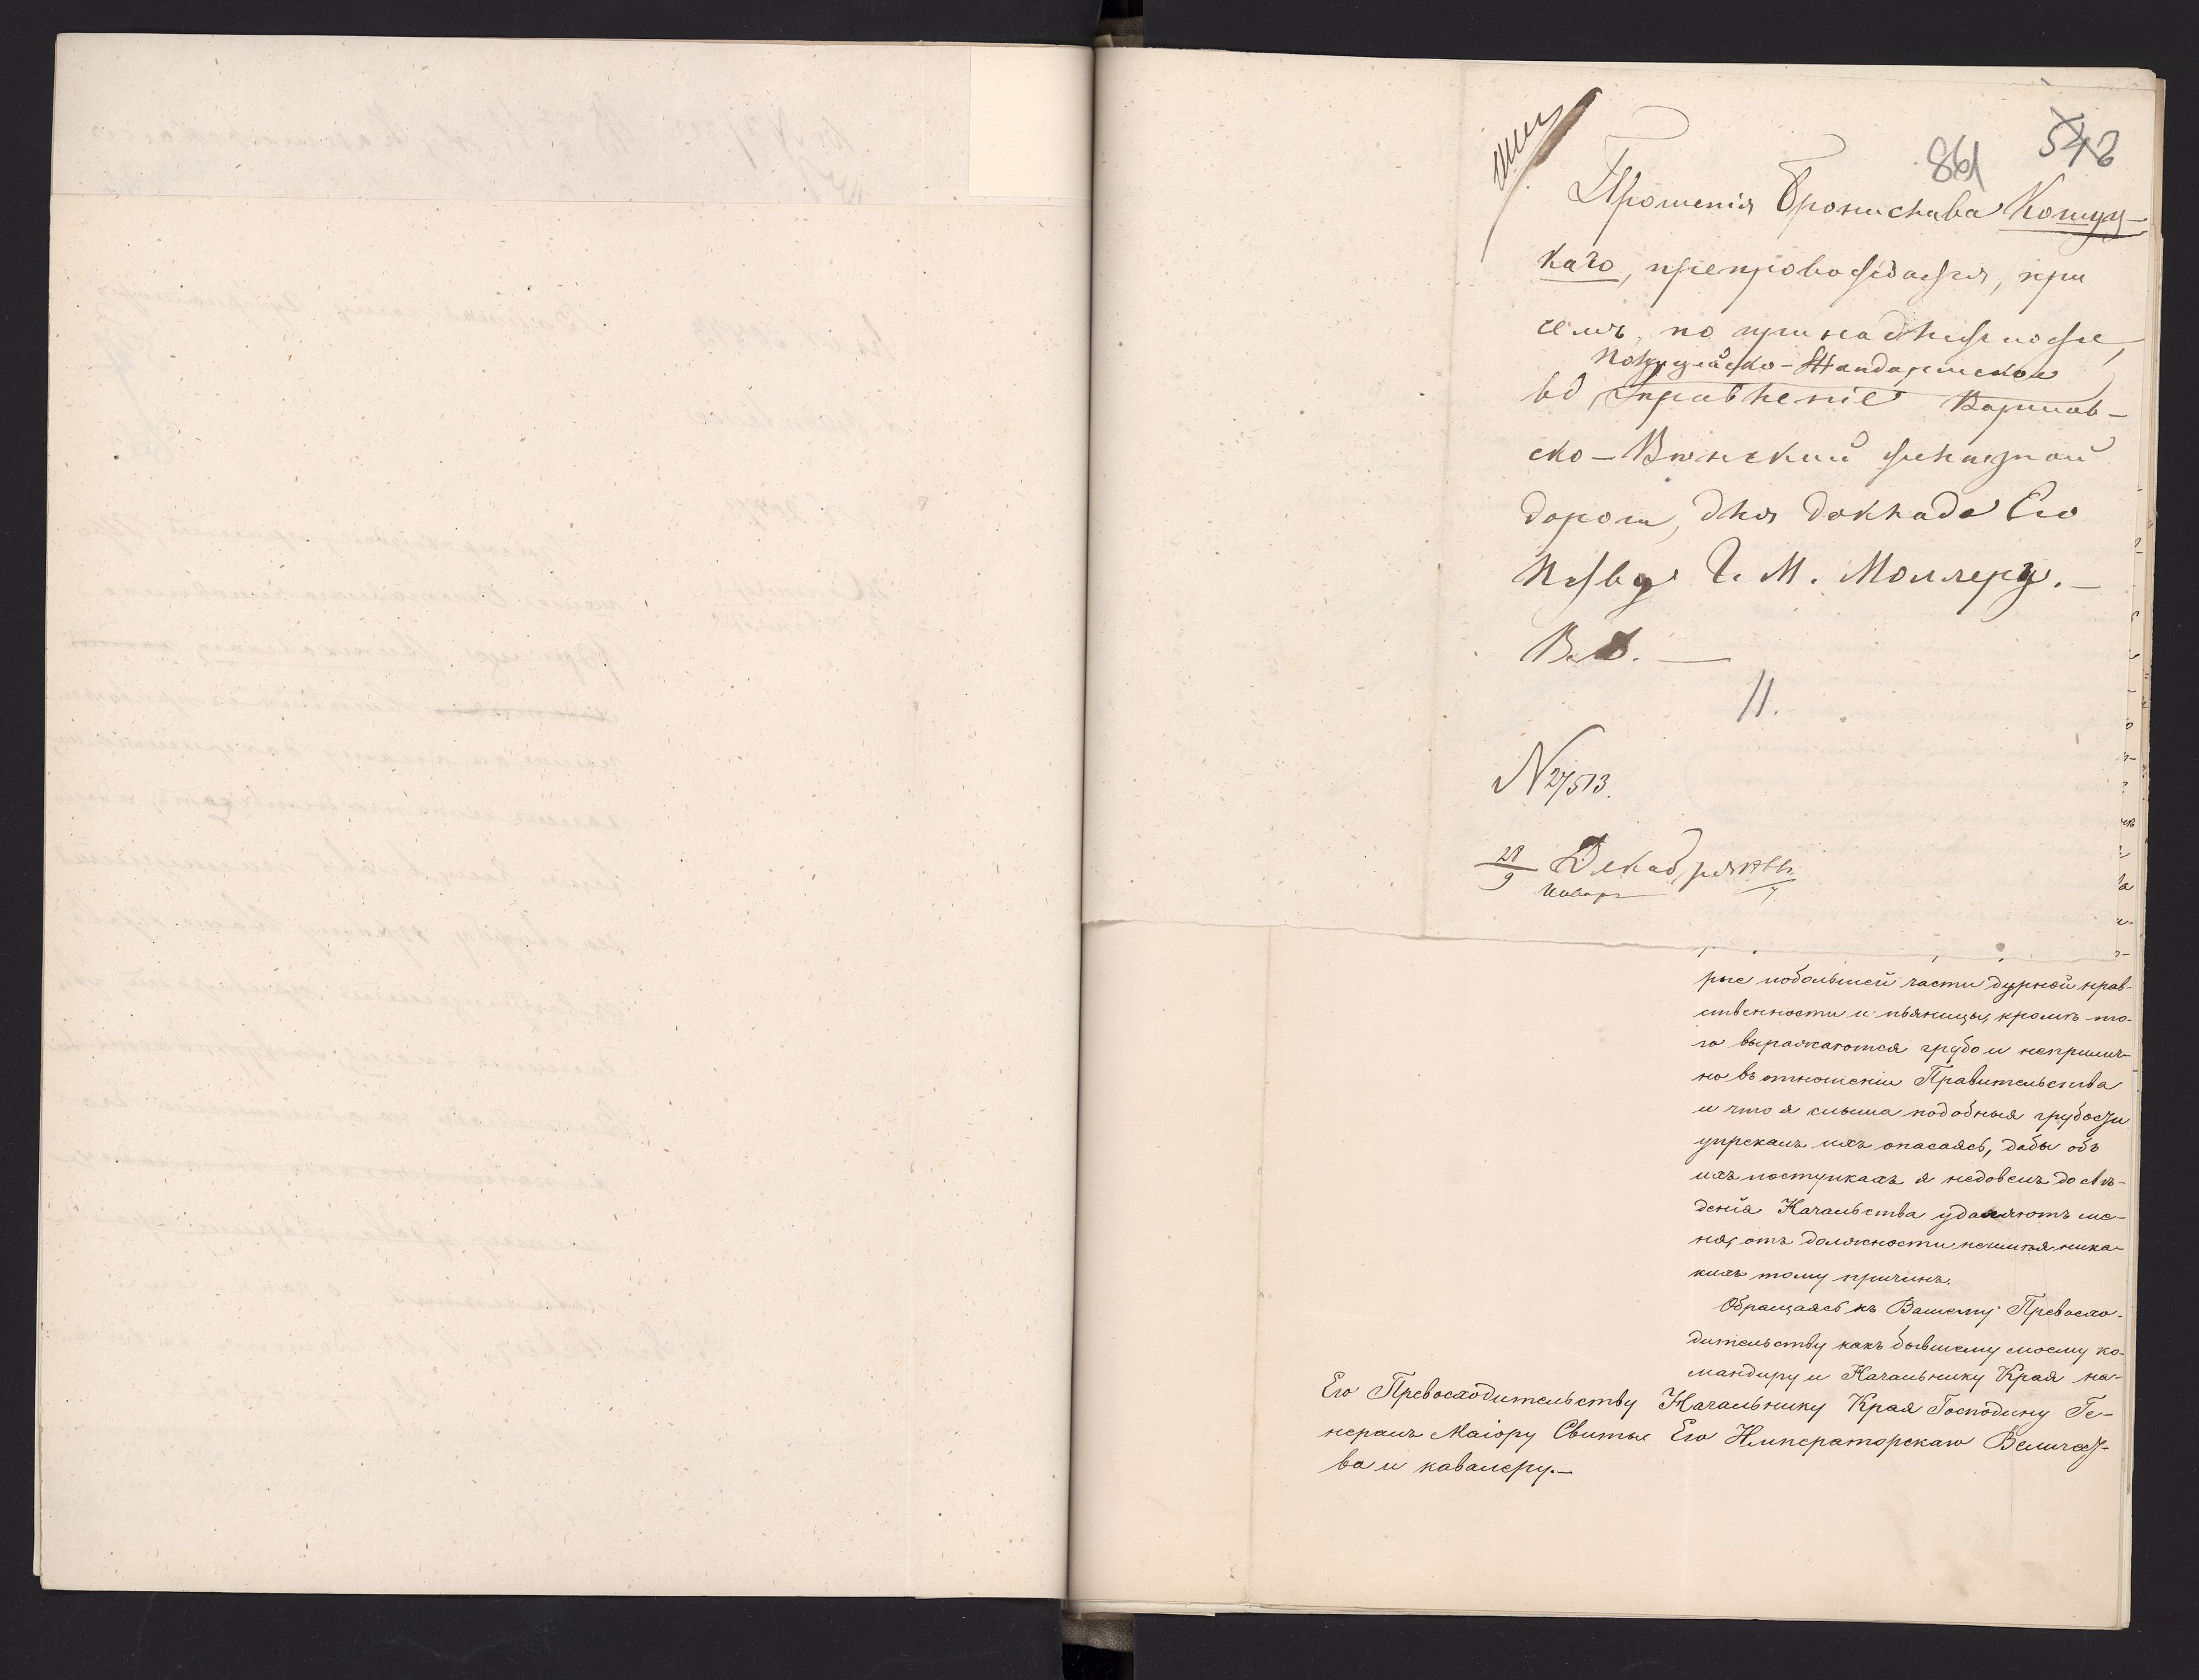 861 543
Прошенія Бронислава Кошуц-
каго, препровождается, при
семъ, по принадлежности,
Полицейско-Жандармское
въ Управленіе Варшав-
ско-Вѣнской желѣзной
дороги, для доклада Его
Пр/ву Г. М. Моллеру.—
11.
N 27513.
28/9 Декабря 1866/7
Января
рые побольшей части дурной нрав-
ственности и пьяницы, кромѣ то-
го выражаются грубо и неприлич-
но въ отношеніи Правительства
и что я слыша подобныя грубости
упрекалъ ихъ опасаясь, дабы объ
ихъ поступкахъ я недовелъ до свѣ-
денія Начальства удаляютъ ме-
ня, отъ должности неимѣя ника-
кихъ тому причинъ.
Обращаясь къ Вашему Превосхо-
дительству какъ бывшему моему ко-
мандиру и Начальнику Края на-
Его Превосходительству Начальнику Края Господину Ге-
нералъ Маіору Свиты Его Императорскаго Величест-
ва и кавалеру.—